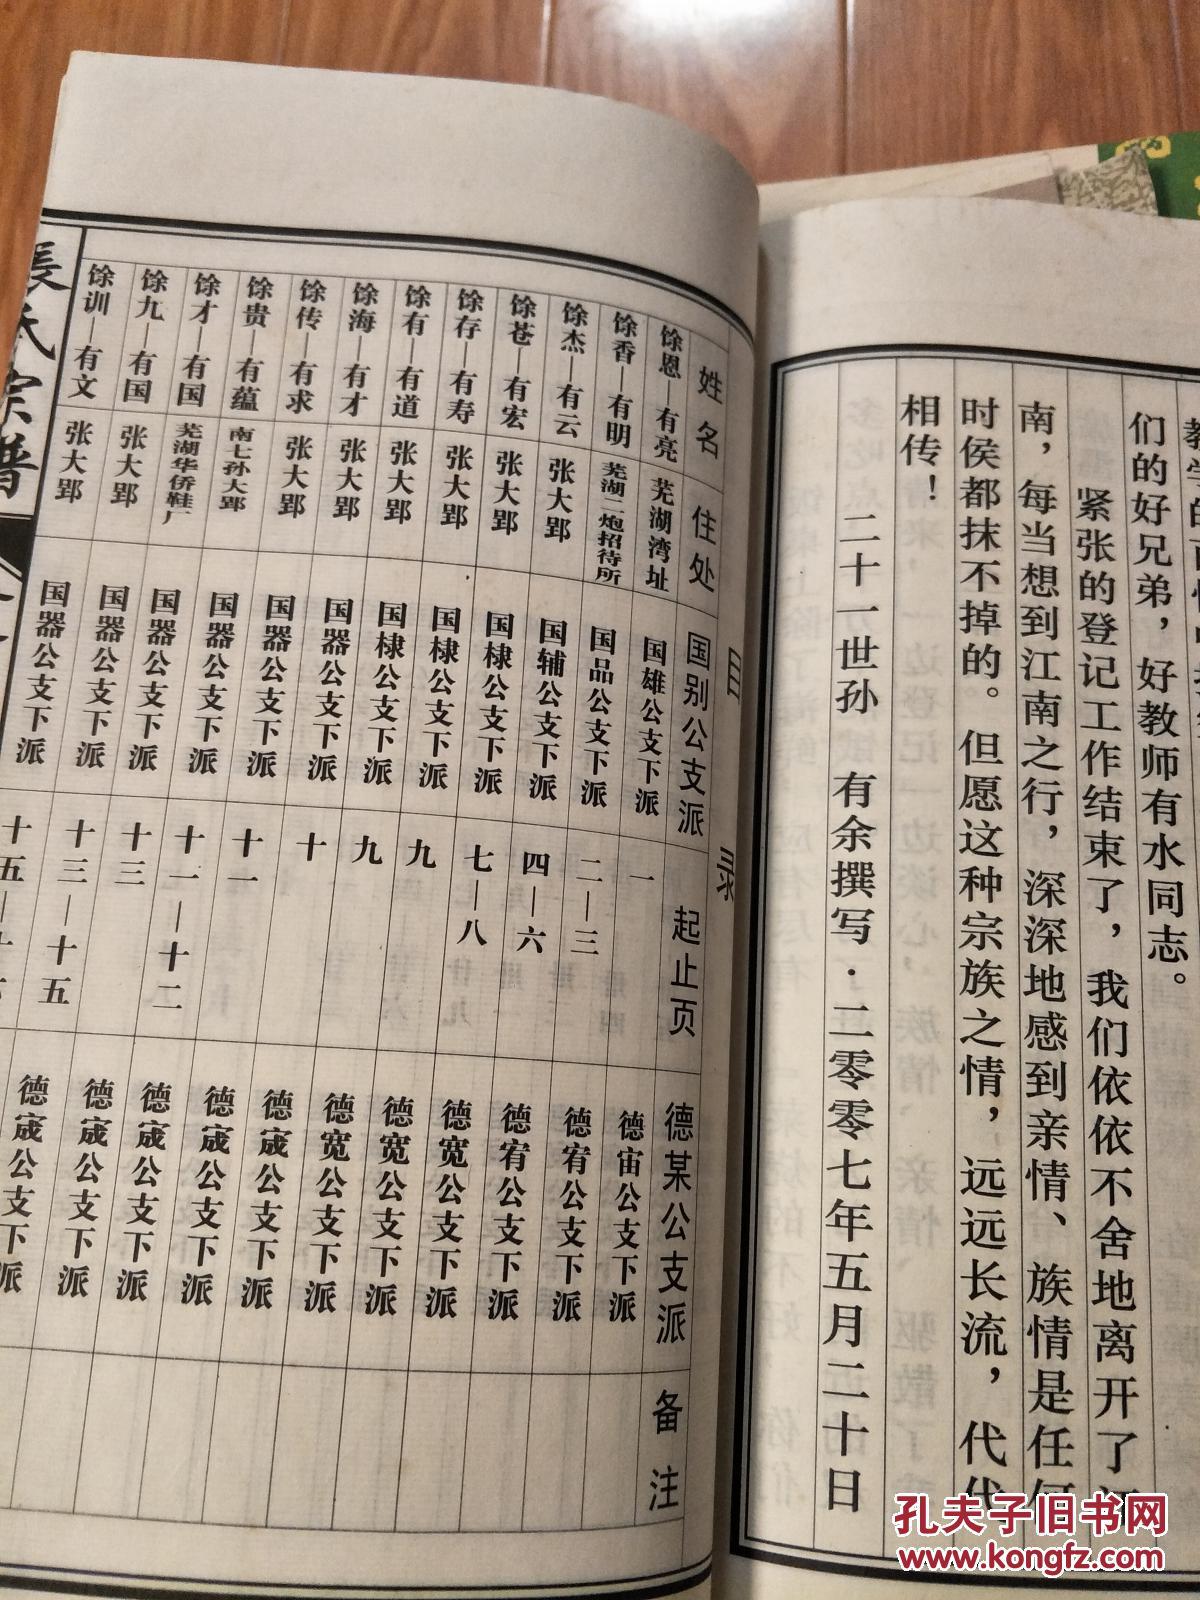 们的好兄弟，好教师有水同志。
紧张的登记工作结束了，我们依依不舍地离开了江
南，每当想到江南之行，深深地感到亲情、族情是任何
时侯都抹不掉的。但愿这种宗族之情，远远长流，代代
相传！
二十一世孙　有余撰写·二零零七年五月二十日
目录
姓名 住处 国别公支派 起止页 德某公支派 备注
馀恩—有亮 芜湖湾址 国雄公支下派 一 德宙公支下派
馀香—有明 芜湖二炮招待所 国品公支下派 二—三 德宥公支下派
馀杰—有云 张大郢 国辅公支下派 四—六 德宥公支下派
馀苍—有宏 张大郢 国棣公支下派 七—八 德宽公支下派
馀存—有寿 张大郢 国棣公支下派 九 德宽公支下派
馀有—有道 张大郢 国棣公支下派 九 德宽公支下派
馀海—有才 张大郢 国器公支下派 十 德宬公支下派
馀传—有求 张大郢 国器公支下派 十一 德宬公支下派
馀贵—有蕴 南七孙大郢 国器公支下派 十一—十二 德宬公支下派
馀才—有国 芜湖华侨鞋厂 国器公支下派 十三 德宬公支下派
馀九—有国 张大郢 国器公支下派 十三—十五 德宬公支下派
馀训—有文 张大郢 国器公支下派
張氏宗譜
孔夫子旧书网
www.kongfz.com